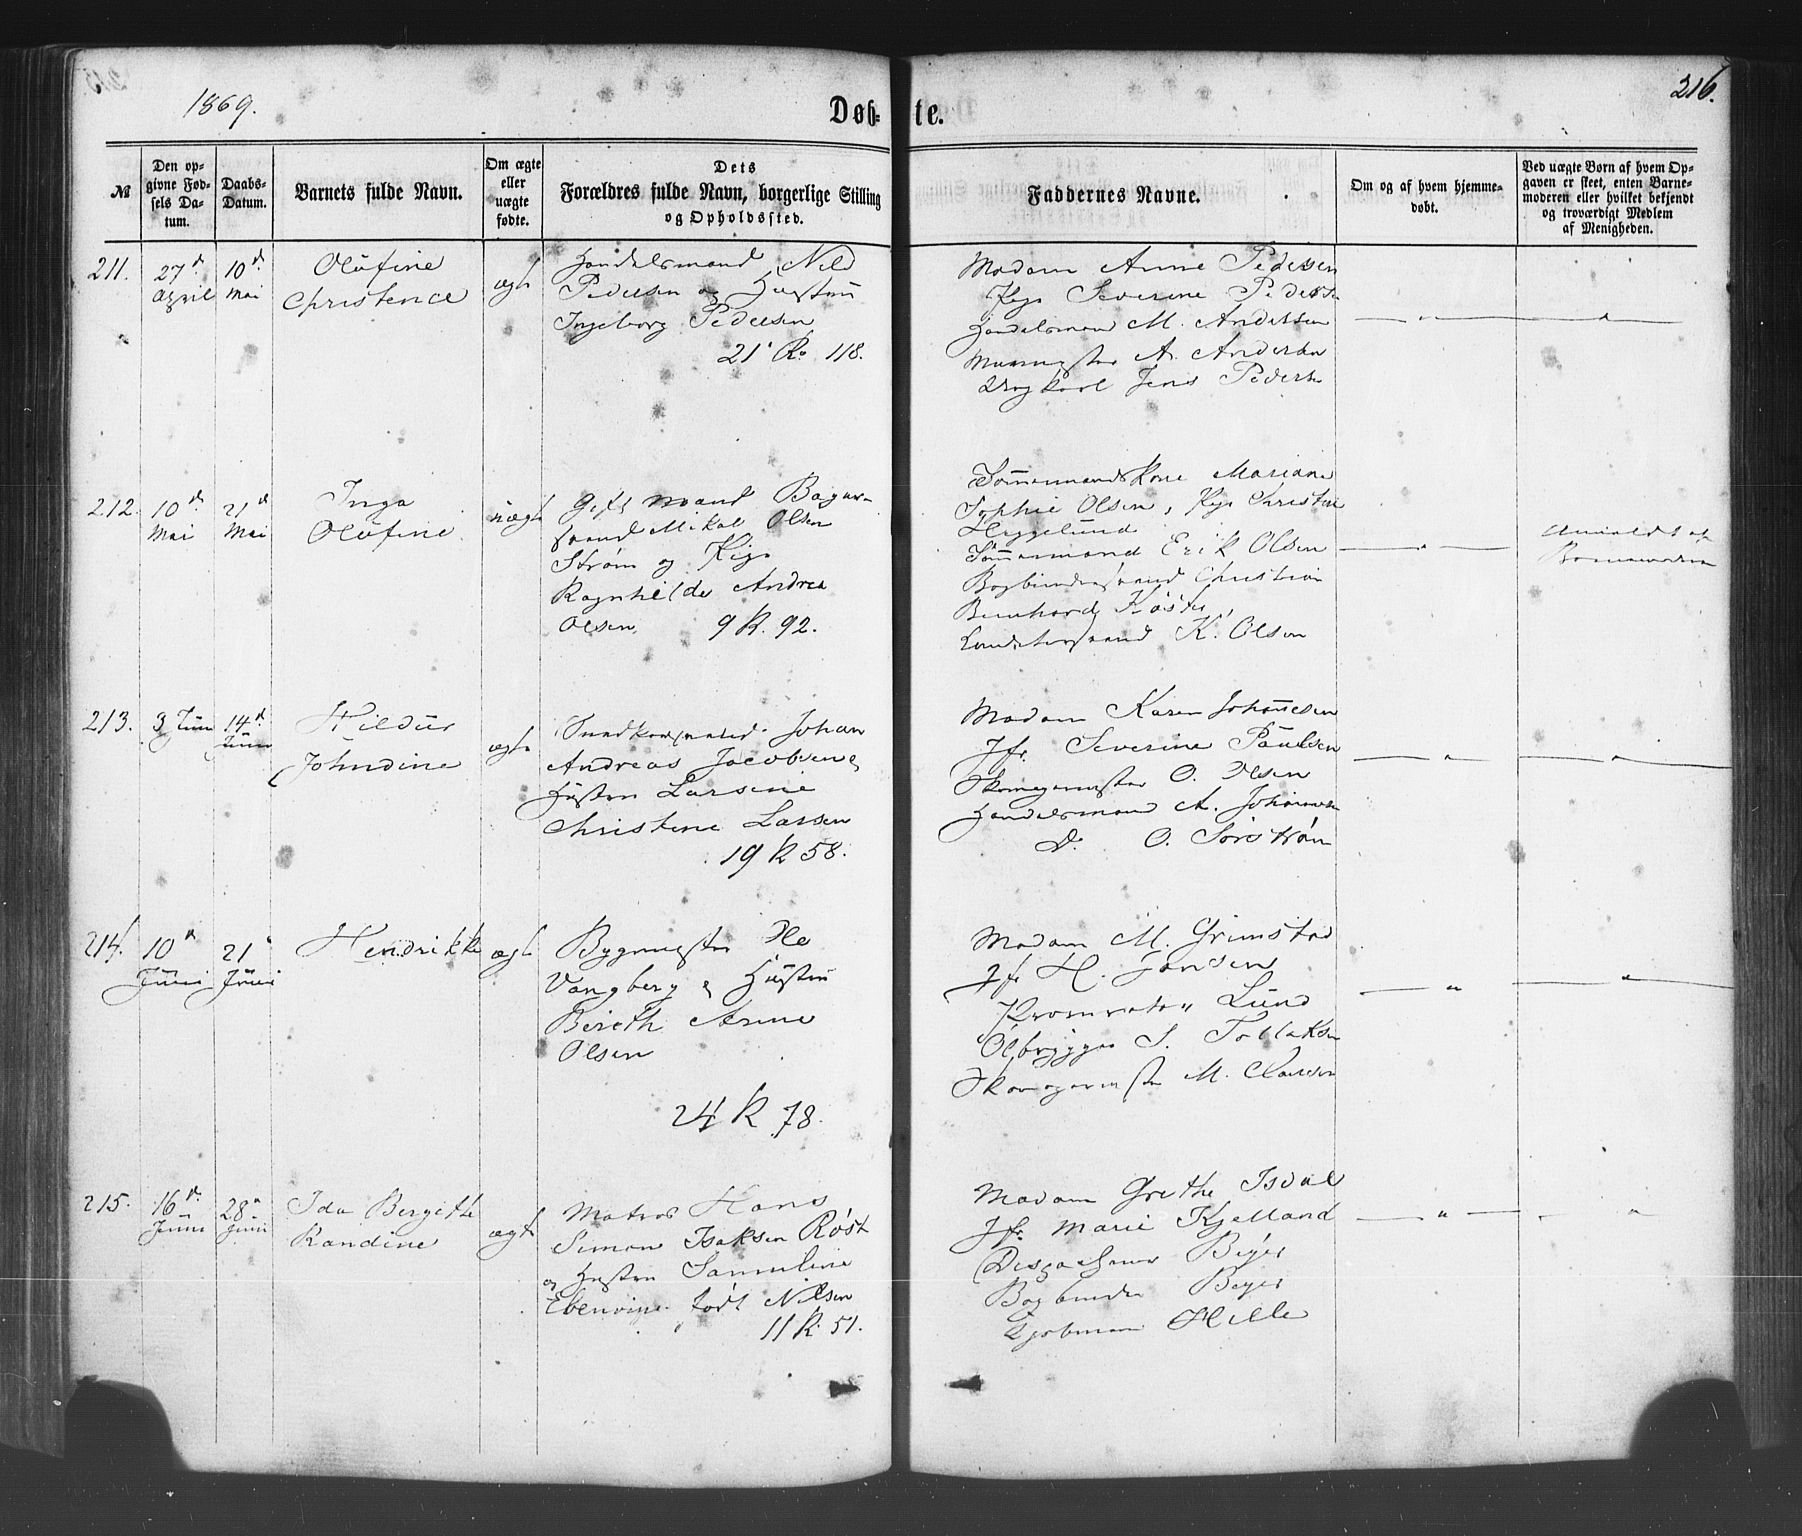 1869.
Døb-
te.
216.
№
Den op-
givne Fød-
sels Da-
tum.
Daabs-
Datum.
Barnets fulde Navn.
Om ægte
eller
uægte
fødte.
Dets
Forældres fulde Navn, borgerlige Stilling
og Opholdssted.
Faddernes Navne.
Om og af hvem hjemme-
døbt.
Ved uægte Børn af hvem Op-
gaven er skeet, enten Barne-
moderen eller hvilket bekjendt
og troværdigt Medlem
af Menigheden.
211.
27d
April
10d.
Mai
Olufine
Christence
ægt
Handelsmand Nils
Pedersen og Hustru
Ingeborg Pedersen
21 R. 118.
Madam Anne Pedersen
Pige Severine Pederse
Handelsmand M. Anderssen
A. Andersen
Jens Peders
212.
10d.
Mai
21d
Mai
Inga
Olufine
uægt
Gift Mand Bager-
svend Mikal Olsen
Strøm og Pige
Ragnhilde Andrea
Olsen. 9 R. 92.
Tømmermands Kone Mariane
Sophie Olsen, Pige Christine
Heggelund
Tømmermand Erik Olsen
Bogbindersvend Christian
Bernhard Køster,
K. Olsen
Anmeldt af
Barnemoderen
213.
3 Juni
14d.
Juni
Hildur
Johndine
ægte
Johan
Andreas Jacobsen &
Hustru Larsine
Christine Larsen
19 R 58.
Madam Karen Johannesen
Jfr. Severine Paulsen
Skomagermester O. Olsen
Handelsmand A. Johannesen
D. O. Sørstrøm
214.
10d
Juni
21
Juni
Hendrikke
ægt
Bygmester Ole
Vangberg & Hustru
Bereth Arine
Olsen
24 R 78.
Madam M. Grimstad
Jfr H. Jansen
Procurator Lund
Ølbrygger S. Tollaksen
Skomagermester M. Clausen
215.
16d.
Juni
28d
Juni
Ida Bergithe
Randine
ægt
Matros Hans
Simon Isaksen Røst
og Hustru Samuline
Ebenvine født Nilsen
11 R. 51.
Madam Grethe Isdal
Jfr. Marie Kjelland
Dispacheur Beyer
Bogbinder Beyer
Kjøbmann Hille